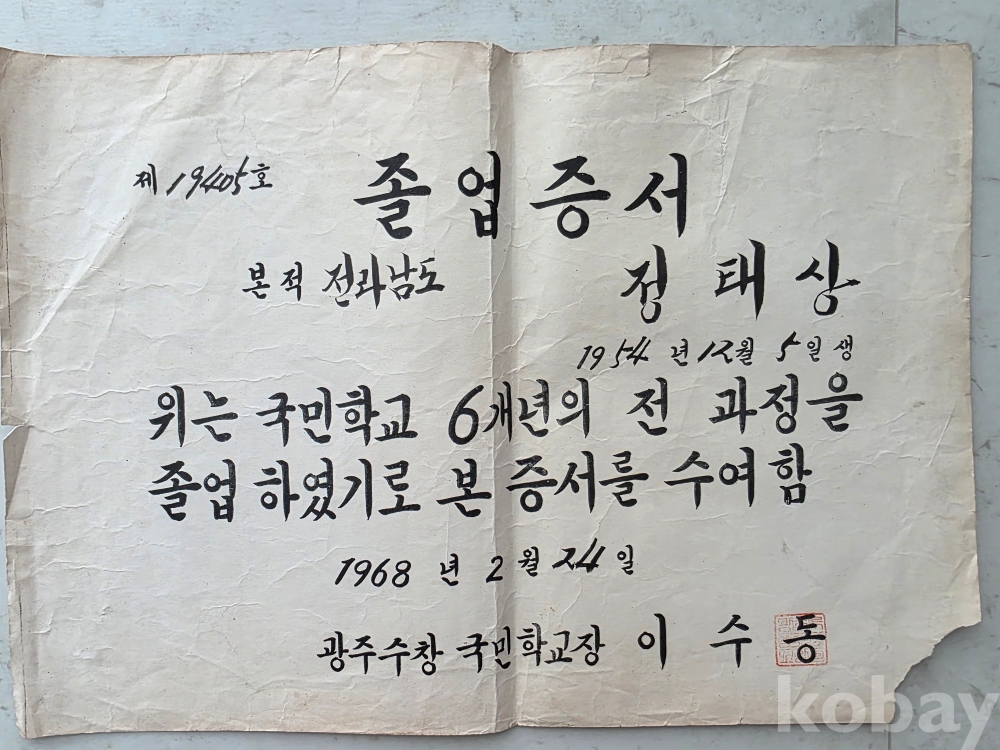 제 19405호
졸업증서
본적 전라남도
정태상
1954년 12월 5일생
위는 국민학교 6개년의 전 과정을
졸업 하였기로 본 증서를 수여함
1968년 2월 24일
광주수창 국민학교장 이수동
kobay